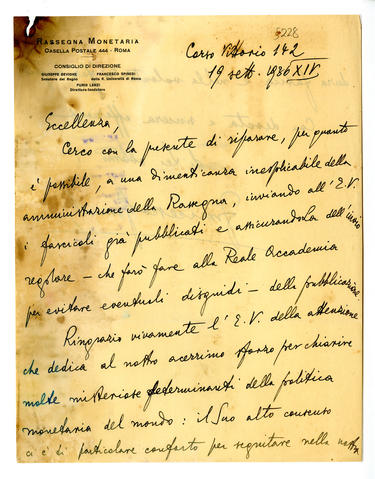 3228
RASSEGNA MONETARIA
CASELLA POSTALE 444 - ROMA
CONSIGLIO DI DIREZIONE
GIUSEPPE BEVIONE
Senatore del Regno
FRANCESCO SPINEDI
della R. Università di Roma
FURIO LENZI
Direttore-fondatore
Corso Vittorio 142
19 sett. 1936 XIV
Eccellenza,
Cerco con la presente di riparare, per quanto
è possibile, a una dimenticanza inesplicabile della
amministrazione della Rassegna, inviando all'E.V.
i fascicoli già pubblicati e assicurandoLa dell'invio
regolare - che farò fare alla Reale Accademia
per evitare eventuali disguidi - della pubblicazione.
Ringrazio vivamente l'E.V. della attenzione
che dedica al nostro acerrimo sforzo per chiarire
molte misteriose determinanti della politica
monetaria del mondo: il Suo alto consenso
ci è di particolare conforto per seguitare nella nostra